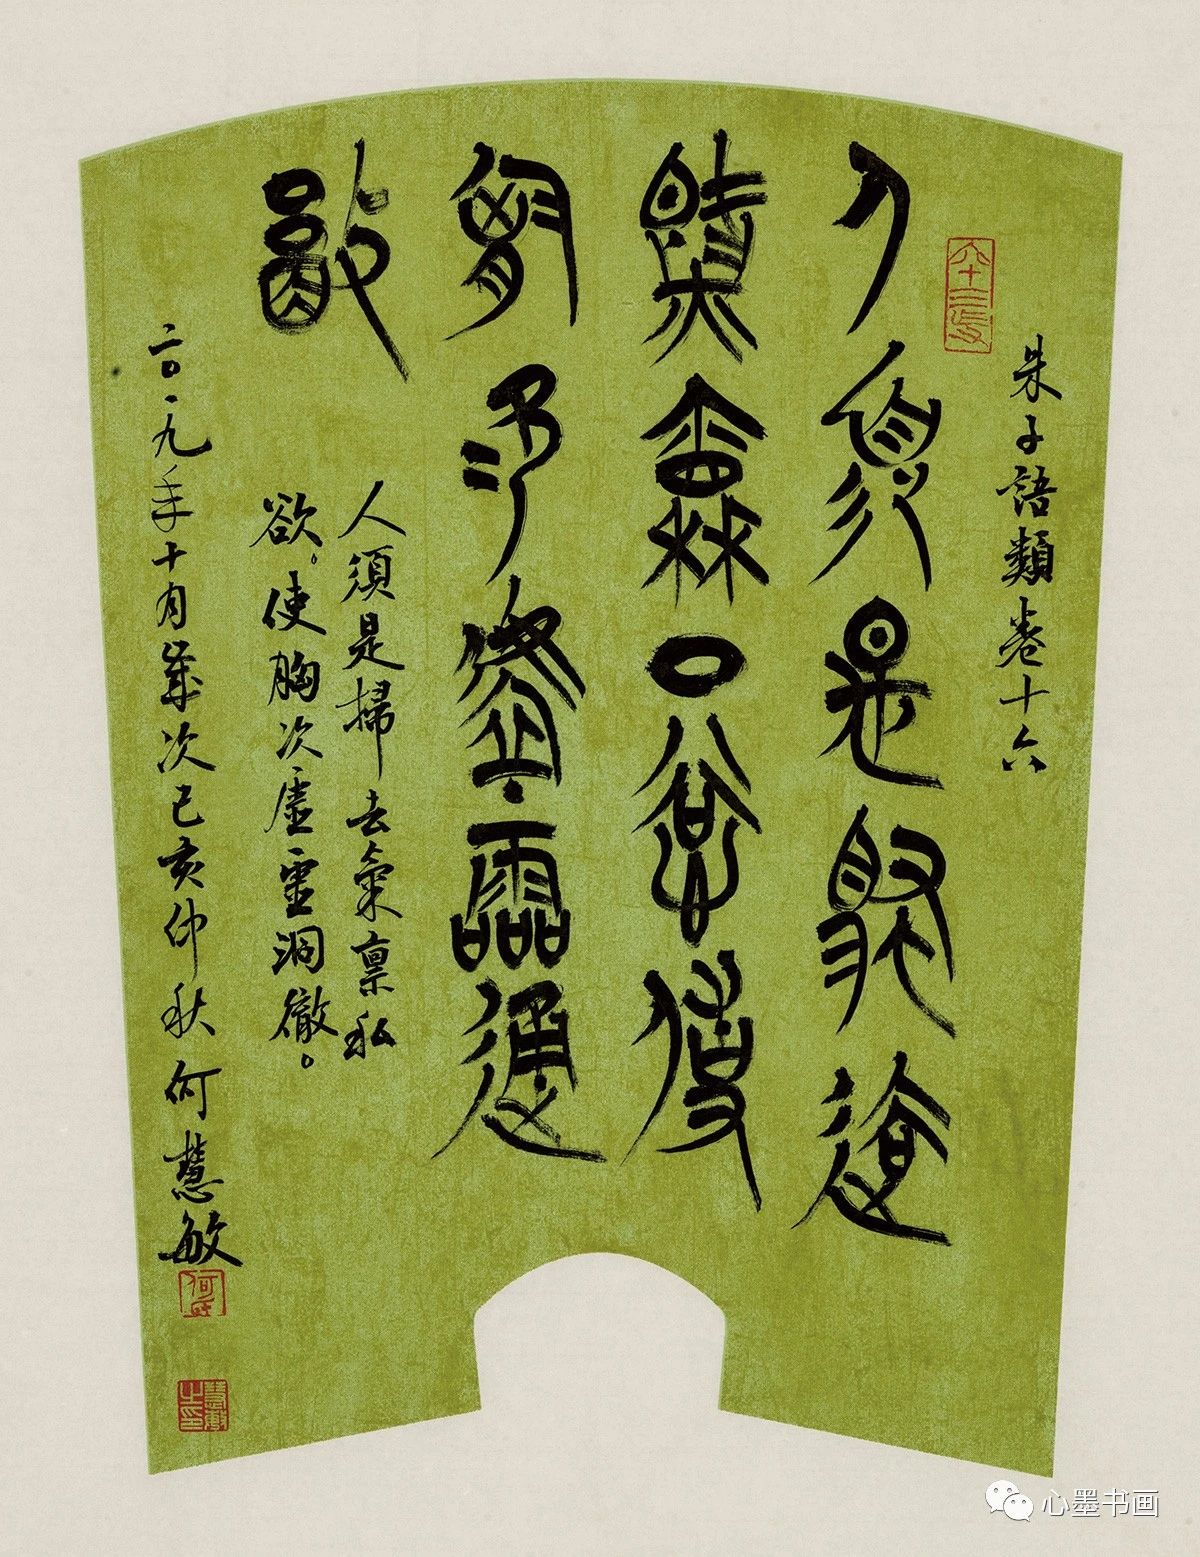 朱子語類卷十六
人須是掃去
氣稟私欲使
胸次虛靈洞
徹
人須是掃去氣稟私
欲。使胸次虛靈洞徹。
二〇一九年十月歲次己亥仲秋何慧敏
何氏
慧敏之印
心墨书画